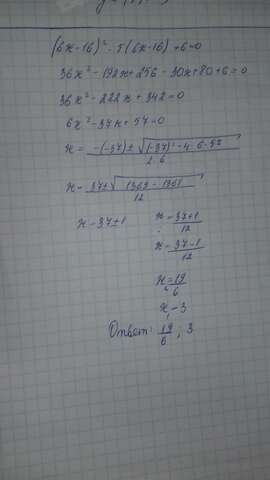 (6x-16)² - 5(6x-16)+6=0
36x²-192x+256-30x+80+6=0
36x²-222x+342=0
6x²-37x+57=0
x = (-(-37)±√((-37)²-4·6·57))/(2·6)
x = (37±√(1369-1368))/12
x = 37±1
x = (37+1)/12
x = (37-1)/12
x = 19/6
x = 3
Ответ: 19/6; 3